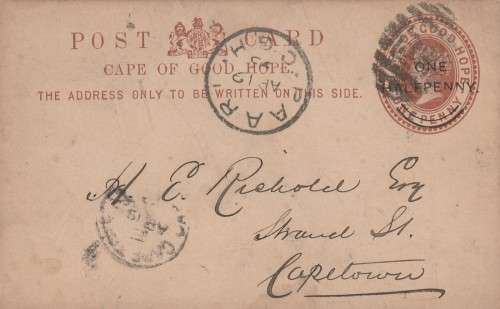 POST CARD
CAPE OF GOOD HOPE.
THE ADDRESS ONLY TO BE WRITTEN ON THIS SIDE.
GOOD HOPE
ONE
HALFPENNY.
PAARL
AP 12
93
C.G.H.
M. E. Rishold Esq
Strand St.
Capetown